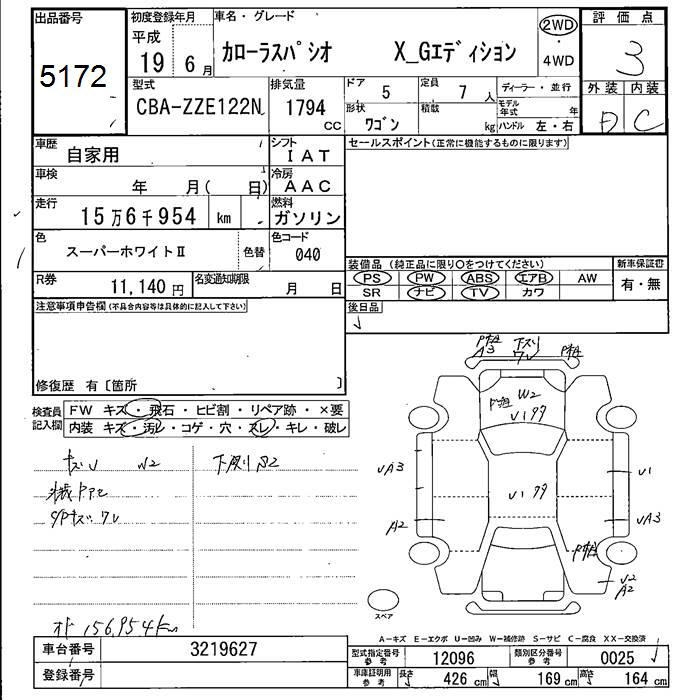 出品番号 5172
初度登録年月 平成 19 年 6 月
車名・グレード カローラスパシオ X_Gエディション
2WD ・ 4WD
評価点 3
外装 内装 D C
型式 CBA-ZZE122N
排気量 1794 CC
ドア 5
定員 7 人
形状 ワゴン
積載 kg
ディーラー・並行
モデル年式 年
ハンドル 左・右
車歴 自家用
シフト IAT
車検 年 月( 日)
冷房 AAC
走行 15万6千954 km
燃料 ガソリン
色 スーパーホワイトⅡ 色替
色コード 040
R券 11,140 円
名変通知期限 月 日
セールスポイント(正常に機能するものに限ります)
装備品 (純正品に限り○をつけてください)
PS PW ABS エアB AW
SR ナビ TV カワ
新車保証書 有・無
後日品
注意事項申告欄(不具合内容等は具体的に記入して下さい)
修復歴 有〔箇所 〕
検査員記入欄
FW キズ・飛石・ヒビ割・リペア跡・×要
内装 キズ・汚レ・コゲ・穴・スレ・キレ・破レ
キズU W2
下廻りS2
オド 156,954km
A3
W2
U1
U1
UA3
A2
U1
UA3
U2
A2
スペア
A-キズ E-エクボ U-凹み W-補修跡 S-サビ C-腐食 XX-交換済
車台番号 3219627
登録番号
型式指定番号 参考 12096
類別区分番号 参考 0025
車庫証明用 参考 長さ 426 cm 幅 169 cm 高さ 164 cm